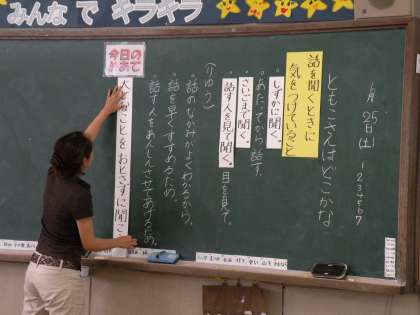 みんなでキラキラ
月25日(土)
1234567
ともこさんはどこかな
話を聞くときに
気をつけていること
・しずかに聞く。
・あたってから話す。
・さいごまで聞く。
・話す人を見て聞く。目を見て。
(りゆう)
・話のなかみがよくわかるから。
・話を早くすすめるため。
・話す人をあんしんさせてあげるため。
今日の
めあて
大じなことをおとさずに聞こ